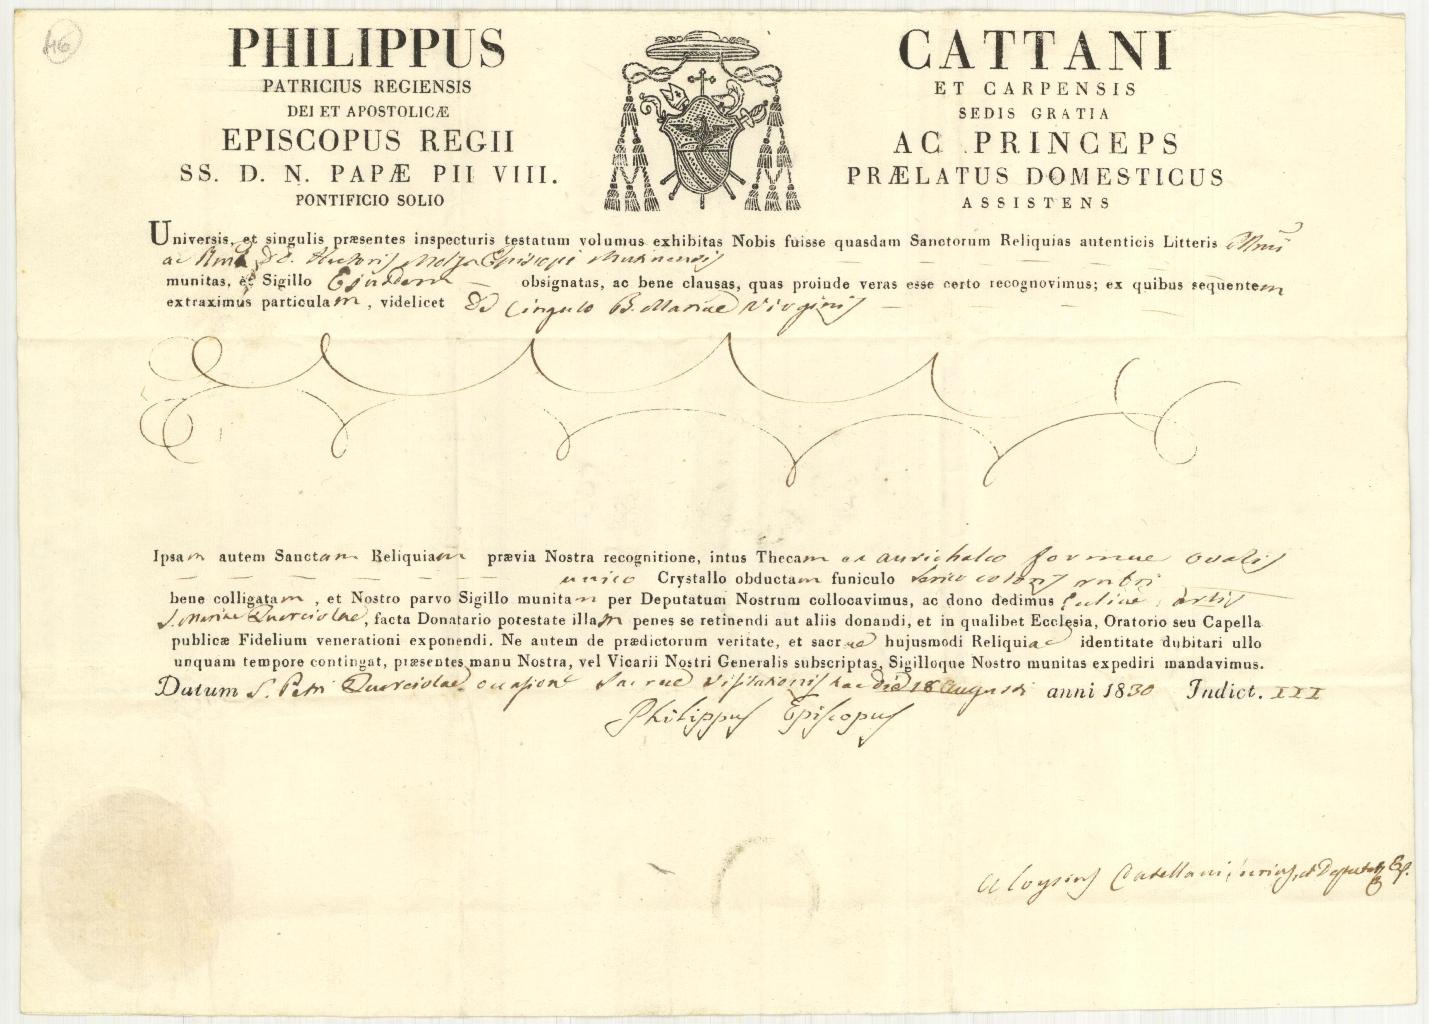 46
PHILIPPUS CATTANI
PATRICIUS REGIENSIS ET CARPENSIS
DEI ET APOSTOLICÆ SEDIS GRATIA
EPISCOPUS REGII AC PRINCEPS
SS. D. N. PAPÆ PII VIII. PRÆLATUS DOMESTICUS
PONTIFICIO SOLIO ASSISTENS
Universis, et singulis præsentes inspecturis testatum volumus exhibitas Nobis fuisse quasdam Sanctorum Reliquias autenticis Litteris Illmi
ac Rmi D. D. Molza Episcopi Mutinensis
munitas, et Sigillo Ejusdem obsignatas, ac bene clausas, quas proinde veras esse certo recognovimus; ex quibus sequentem
extraximus particulam, videlicet De Cingulo B. Mariae Virginis
Ipsam autem Sanctam Reliquiam prævia Nostra recognitione, intus Thecam ex aurichalco formae ovalis
unico Crystallo obductam funiculo serico coloris rubri
bene colligatam, et Nostro parvo Sigillo munitam per Deputatum Nostrum collocavimus, ac dono dedimus
S. Mariae Querciolae, facta Donatario potestate illam penes se retinendi aut aliis donandi, et in qualibet Ecclesia, Oratorio seu Capella
publicæ Fidelium venerationi exponendi. Ne autem de prædictorum veritate, et sacrae hujusmodi Reliquiae identitate dubitari ullo
unquam tempore contingat, præsentes manu Nostra, vel Vicarii Nostri Generalis subscriptas, Sigilloque Nostro munitas expediri mandavimus.
Datum S. Petri Querciolae occasione Sacrae Visitationis hac die 18 Augusti anni 1830 Indict. III
Philippus Episcopus
Aloysius Castellani